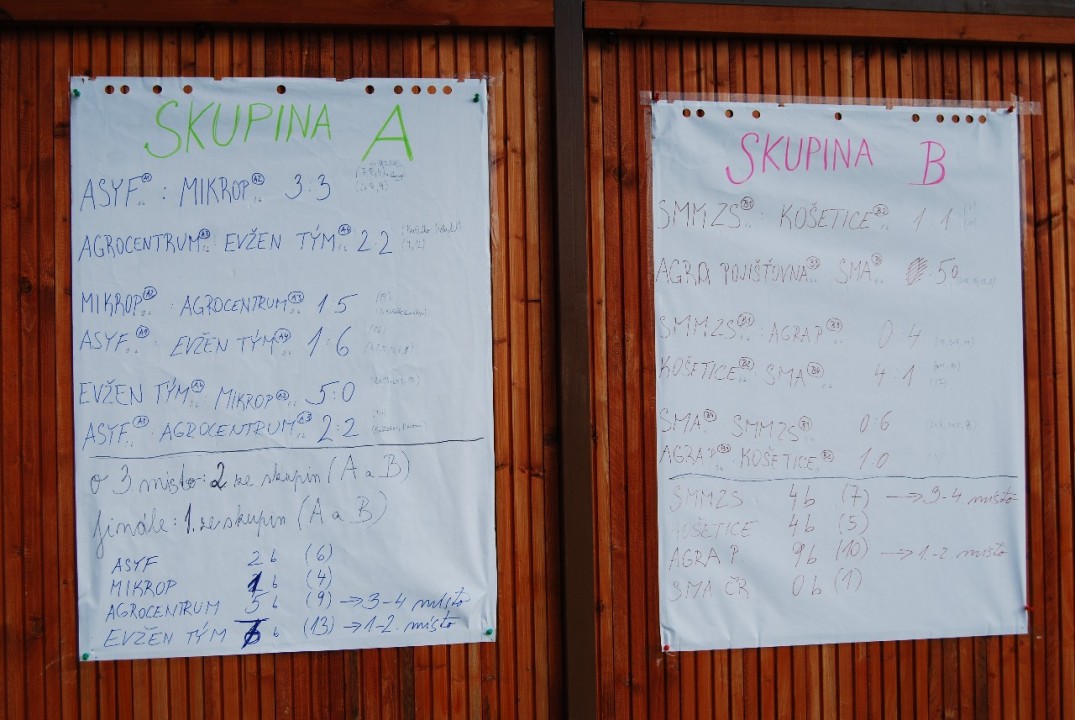 SKUPINA A
ASYF A1 : MIKROP A2 3:3
AGROCENTRUM A3 EVŽEN TÝM A4 2:2
MIKROP A2 : AGROCENTRUM A3 1:5
ASYF A1 : EVŽEN TÝM A4 1:6
EVŽEN TÝM A4 MIKROP A2 5:0
ASYF A1 : AGROCENTRUM A3 2:2
o 3 místo: 2 ze skupin (A a B)
finále: 1. ze skupin (A a B)
ASYF 2 b (6)
MIKROP 1 b (4)
AGROCENTRUM 5 b (9) → 3-4 místo
EVŽEN TÝM b (13) → 1-2. místo
SKUPINA B
SMMZS B1 : KOŠETICE B2 1 1
AGRA POJIŠŤOVNA B3 SMA :50
SMMZS B1 : AGRA P B3 0:4
KOŠETICE B2 SMA B4 4:1
SMA B4 SMMZS B1 0:6
AGRA P B3 KOŠETICE B2 1:0
SMMZS 4b (7) → 3-4 místo
KOŠETICE 4b (5)
AGRA P. 9b (10) → 1.-2 místo
SMA ČR 0b (1)